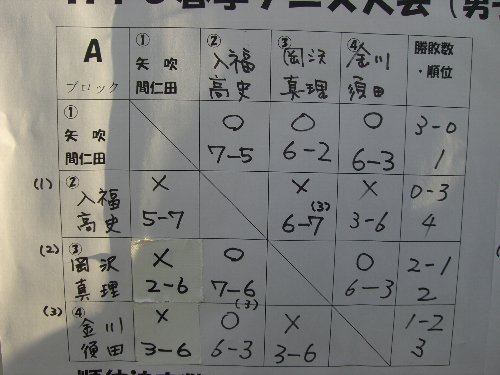 春季テニス大会（男子
A
ブロック
①
矢吹
間仁田
②
入福
高史
③
岡沢
真理
④
金川
須田
勝敗数
・順位
①
矢吹
間仁田
○ ○ ○ 3-0
7-5 6-2 6-3 1
(1) ②
入福
高史
× × × 0-3
5-7 6-7(3) 3-6 4
(2) ③
岡沢
真理
× ○ ○ 2-1
2-6 7-6(3) 6-3 2
(3) ④
金川
須田
× ○ × 1-2
3-6 6-3 3-6 3